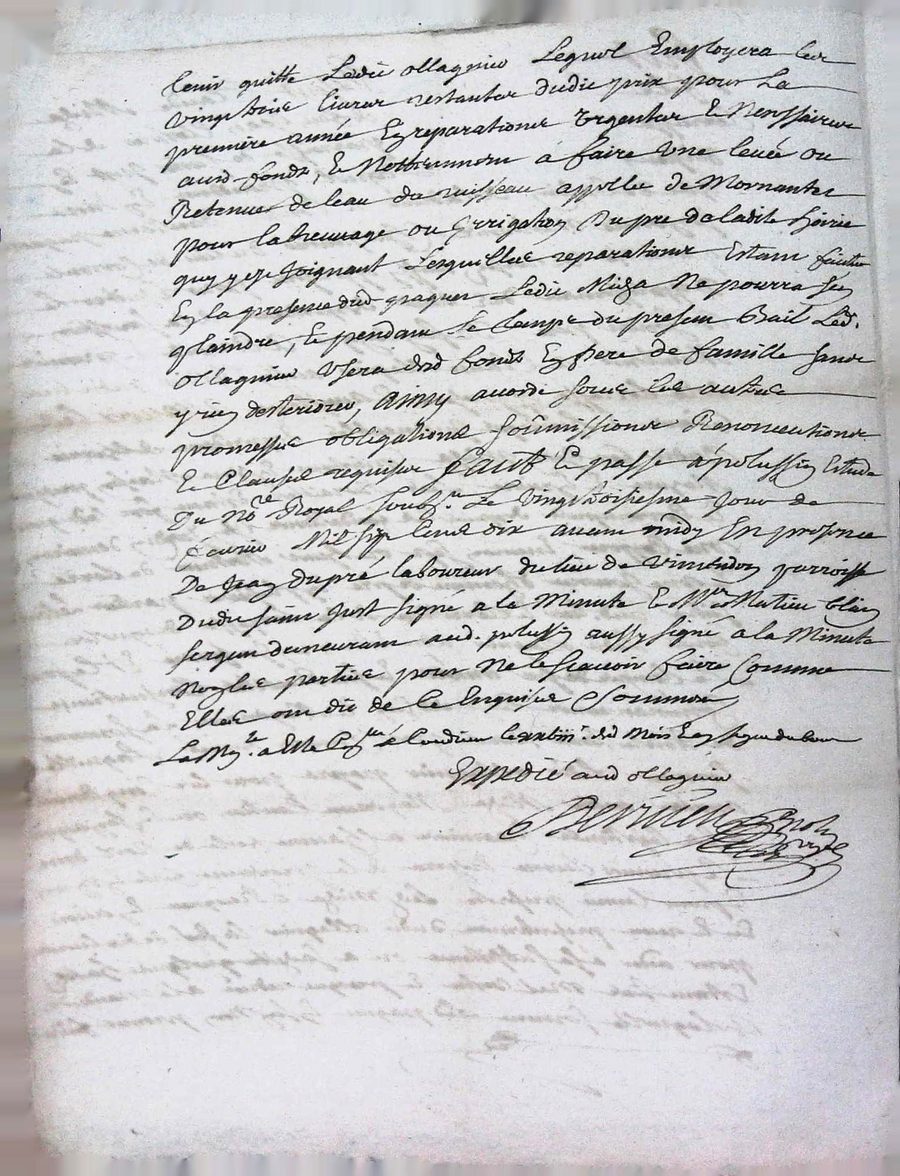 tenir quitte Ledit ollagnier Lequel Employera les
vingt trois livres restantes dudit prix pour La
premiere année En reparations urgentes Et Necessaires
audit fonds, Et Nottemment à faire une levée ou
Retenue de leau du ruisseau appellé de Mornantes
pour labreuvage ou Irrigation Du pré de ladite
quy y est Joignant Lesquelles reparations Estant faittes
En la presence dud gragner Ledit Ne pourra sen
plaindre, Et pendant Le temps du present Bail Led.
ollagnier usera dud fonds En pere de famille sans
y rien desteriorer, Ainsy acordé sous les autres
promesses obligations soumissions Renonciations
Et Clauses requises faict Et passé à polussin Estude
Du No.re Royal soubs.né Le vingt troisiesme Jour de
Mil sept cent dix avant midy En presence
De Jean dupré laboureur du lieu de parroisse
Dudit saint Just signé a la Minute Et M.re Matieu
sergent demeurant aud. polussin aussy signé a la Minute
Non les parties pour Ne le scavoir faire Comme
Elles ont dit de ce Enquises Et Sommées
La My.te a Esté à dud Mois
Expedié aud ollagnier